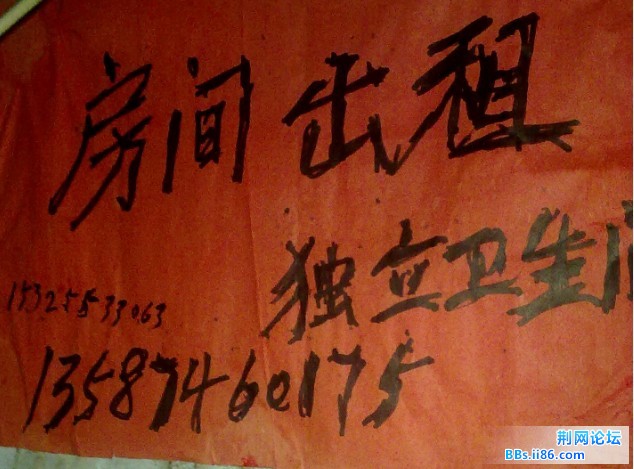 房间出租
独立卫生间
15325533063
13587460175
荆网论坛
BBs.ii86.com